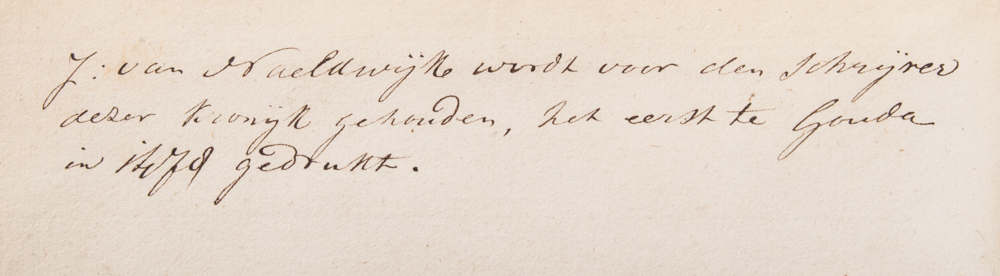 J: van Naeldwijk wordt voor den Schrijver
dezer Kronijk gehouden, het eerst te Gouda
in 1478 gedrukt.